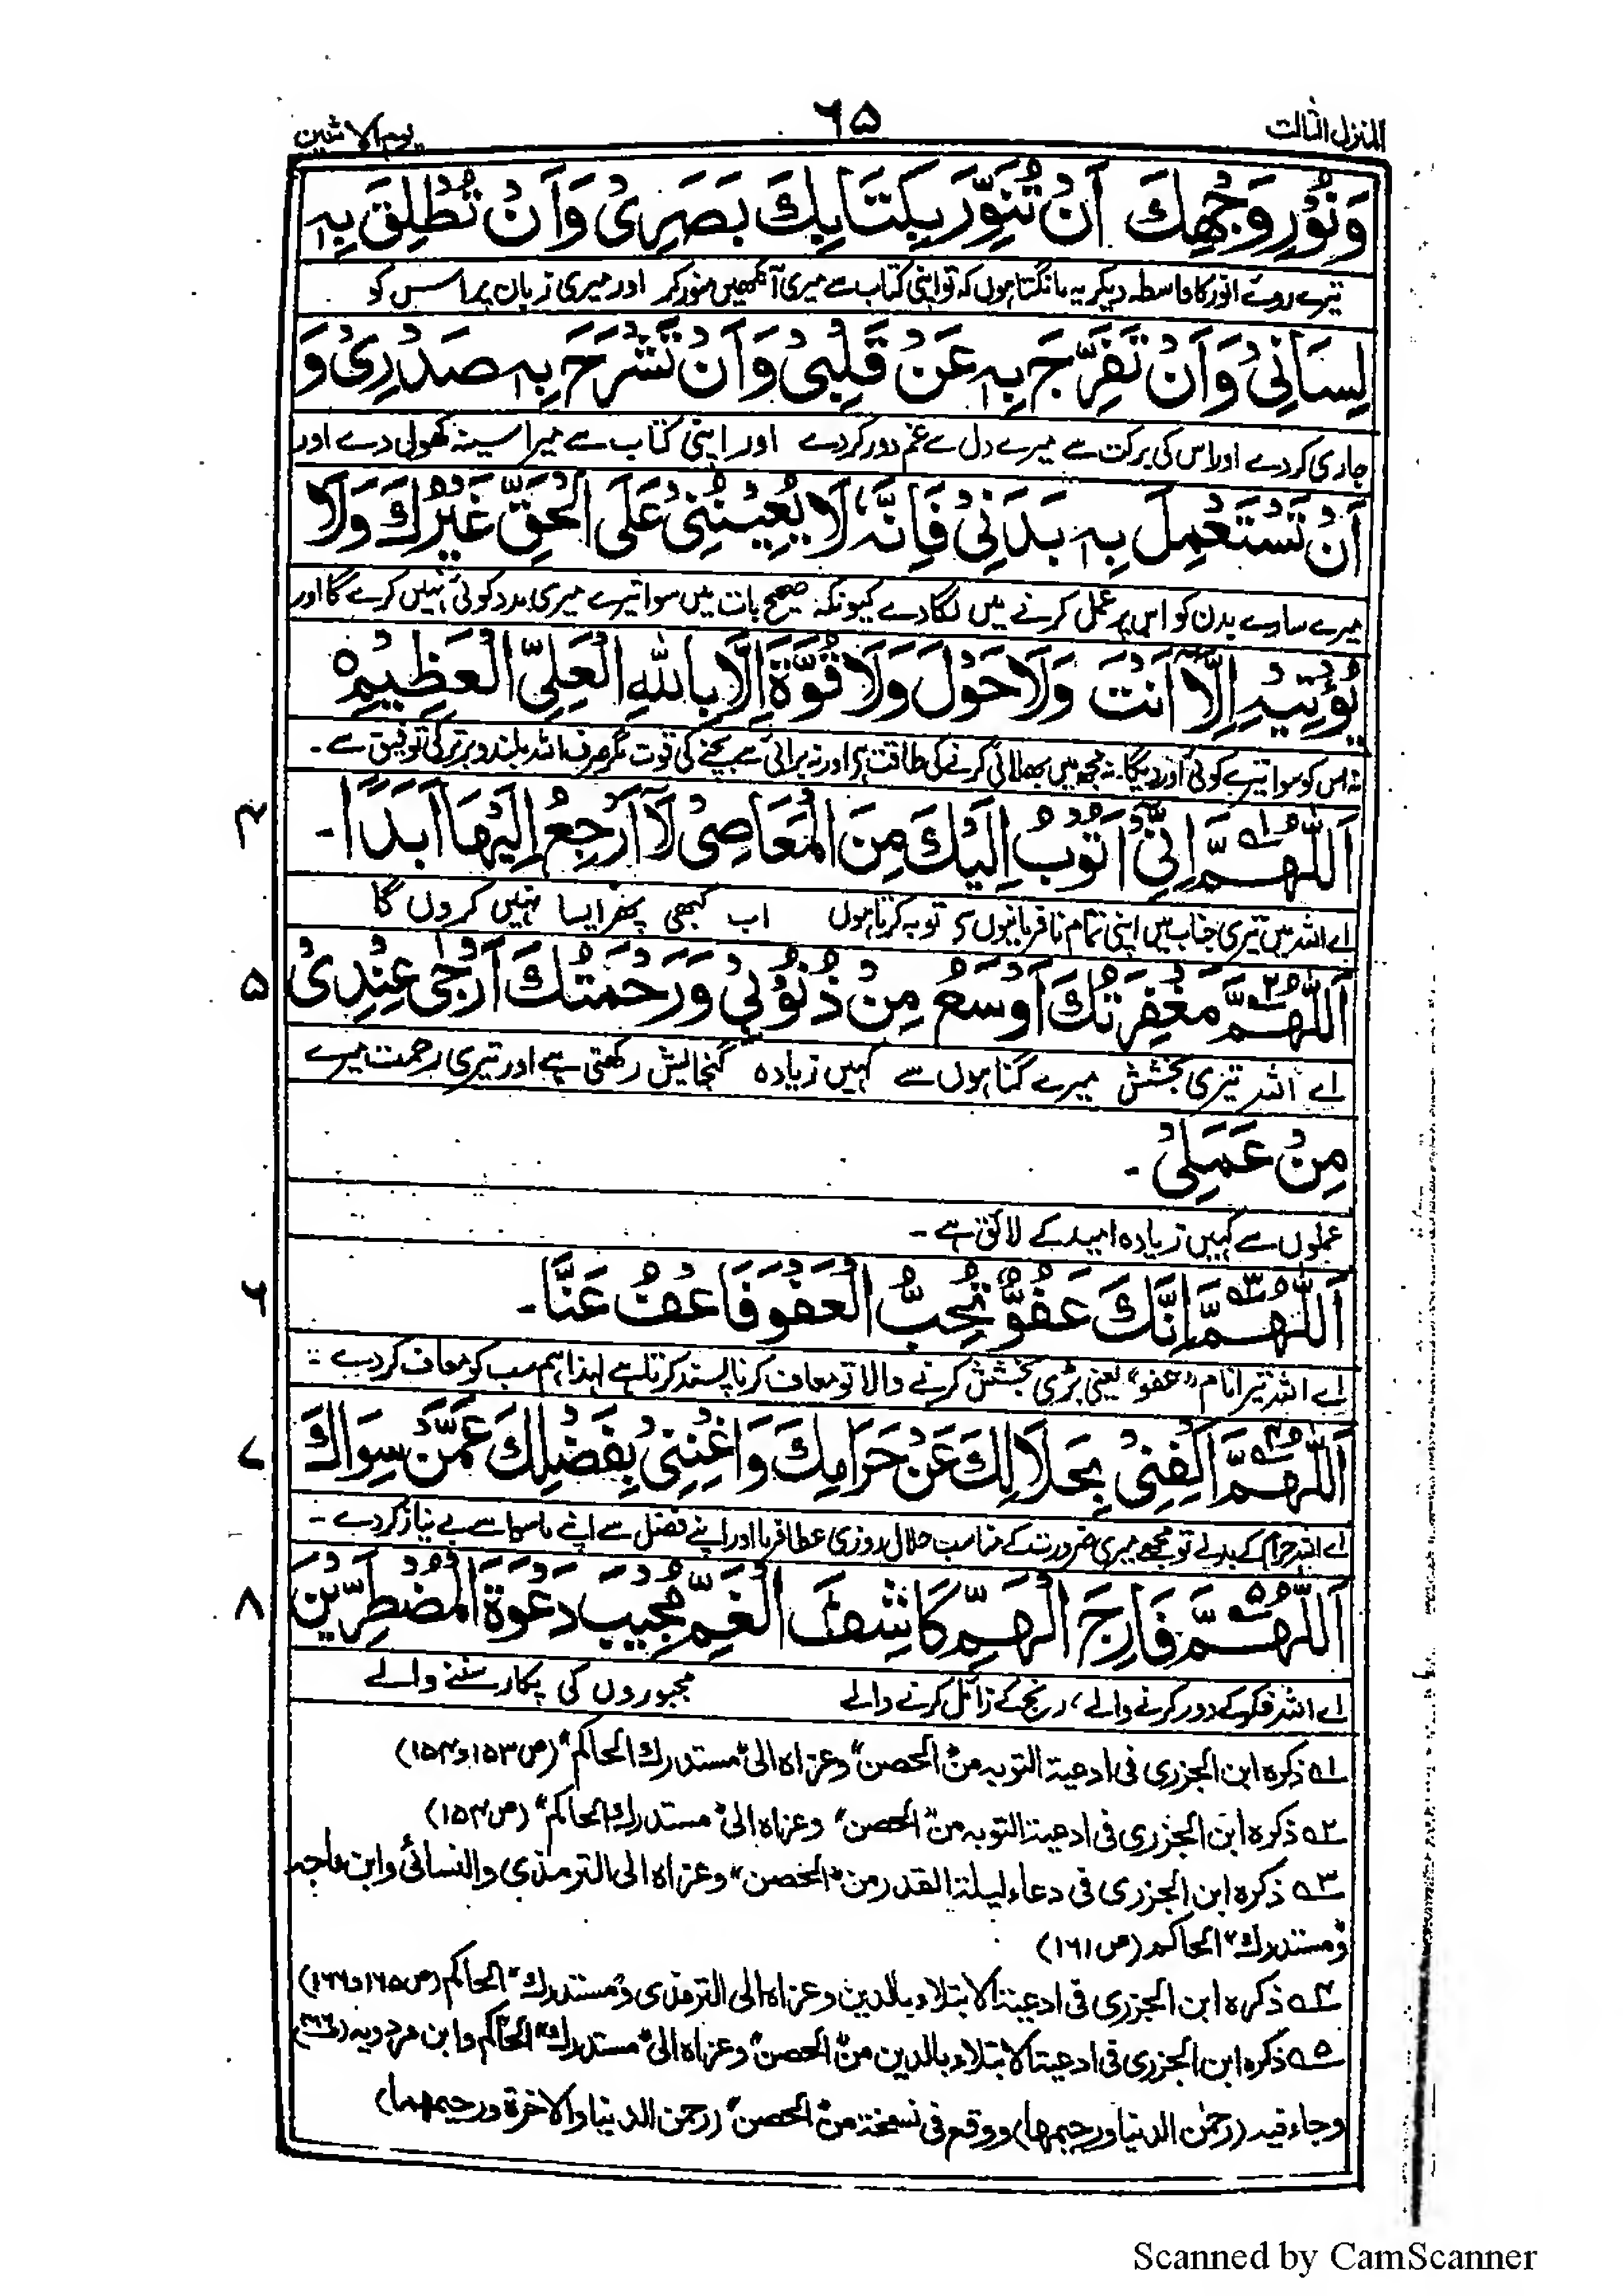 المنزل الثالث
٦٥
يوم الاثنين
وَنُوْرِ وَجْهِكَ اَنْ تُنَوِّرَ بِكِتَابِكَ بَصَرِىْ وَاَنْ تُطْلِقَ بِهٖ
تیرے روئے انور کا واسطہ دیکر یہ مانگتا ہوں کہ تو اپنی کتاب سے میری آنکھیں منور کر اور میری زبان پر اس کو
لِسَانِىْ وَاَنْ تُفَرِّجَ بِهٖ عَنْ قَلْبِىْ وَاَنْ تَشْرَحَ بِهٖ صَدْرِىْ وَ
جاری کردے اور اس کی برکت سے میرے دل سے غم دور کردے اور اپنی کتاب سے میرا سینہ کھول دے اور
اَنْ تَسْتَعْمِلَ بِهٖ بَدَنِىْ فَاِنَّهٗ لَا يُعِيْنُنِىْ عَلَى الْحَقِّ غَيْرُكَ وَلَا
میرے سارے بدن کو اس پر عمل کرنے میں لگادے کیونکہ صحیح بات میں سوا تیرے میری مدد کوئی نہیں کرے گا اور
يُؤْتِيْهِ اِلَّا اَنْتَ وَلَا حَوْلَ وَلَا قُوَّةَ اِلَّا بِاللهِ الْعَلِىِّ الْعَظِيْمِ ہ
نہ اس کو سوا تیرے کوئی اور دیگا۔ نہ مجھ میں بھلائی کرنے کی طاقت ہے اور نہ برائی سے بچنے کی قوت مگر صرف اللہ بلند و برتر کی توفیق سے ۔
٤
اَللّٰهُمَّ اِنِّىْ اَتُوْبُ اِلَيْكَ مِنَ الْمَعَاصِىْ لَا اَرْجِعُ اِلَيْهَا اَبَدًا ۔
اے اللہ میں تیری جناب میں اپنی تمام نافرمانیوں سے توبہ کرتا ہوں اب کبھی پھر ایسا نہیں کروں گا
٥
اَللّٰهُمَّ مَغْفِرَتُكَ اَوْسَعُ مِنْ ذُنُوْبِىْ وَرَحْمَتُكَ اَرْجٰى عِنْدِىْ
اے اللہ تیری بخشش میرے گناہوں سے کہیں زیادہ گنجائش رکھتی ہے اور تیری رحمت میرے
مِنْ عَمَلِىْ ۔
عملوں سے کہیں زیادہ امید کے لائق ہے ۔
٦
اَللّٰهُمَّ اِنَّكَ عَفُوٌّ تُحِبُّ الْعَفْوَ فَاعْفُ عَنَّا ۔
اے اللہ تیرا نام "عفو" یعنی بڑی بخشش کرنے والا تو معاف کرنا پسند کرتا ہے لہذا ہم سب کو معاف کردے ۔
٧
اَللّٰهُمَّ اكْفِنِىْ بِحَلَالِكَ عَنْ حَرَامِكَ وَاَغْنِنِىْ بِفَضْلِكَ عَمَّنْ سِوَاكَ
اے اللہ حرام کے بدلے تو مجھے میری ضرورت کے مناسب حلال روزی عطا فرما اور اپنے فضل سے اپنے ماسوا سے بے نیاز کردے ۔
٨
اَللّٰهُمَّ فَارِجَ الْهَمِّ كَاشِفَ الْغَمِّ مُجِيْبَ دَعْوَةِ الْمُضْطَرِّيْنَ
اے اللہ فکر کے دور کرنے والے، رنج کے زائل کرنے والے مجبوروں کی پکار سننے والے
؀۱ ذكره ابن الجزرى فى ادعية التوبه من "الحصن" وعزاه الى "مستدرك الحاكم" (ص ١٥٣ و ١٥٤)
؀۲ ذكره ابن الجزرى فى ادعية التوبه من "الحصن" وعزاه الى "مستدرك الحاكم" (ص ١٥٤)
؀۳ ذكره ابن الجزرى فى دعاء ليلة القدر من "الحصن" وعزاه الى الترمذى والنسائى وابن ماجه
و"مستدرك" الحاكم (ص ١٦١)
؀۴ ذكره ابن الجزرى فى ادعية الابتلاء بالدين وعزاه الى الترمذى و"مستدرك" الحاكم (ص ١٦٥ و ١٦٦)
؀۵ ذكره ابن الجزرى فى ادعية الابتلاء بالدين من "الحصن" وعزاه الى "مستدرك" الحاكم وابن مردويه
وجاء فيه (رحمٰن الدنيا ورحيمها) ووقع فى نسخة من "الحصن" (رحمن الدنيا والاخرة ورحيمهما)
Scanned by CamScanner